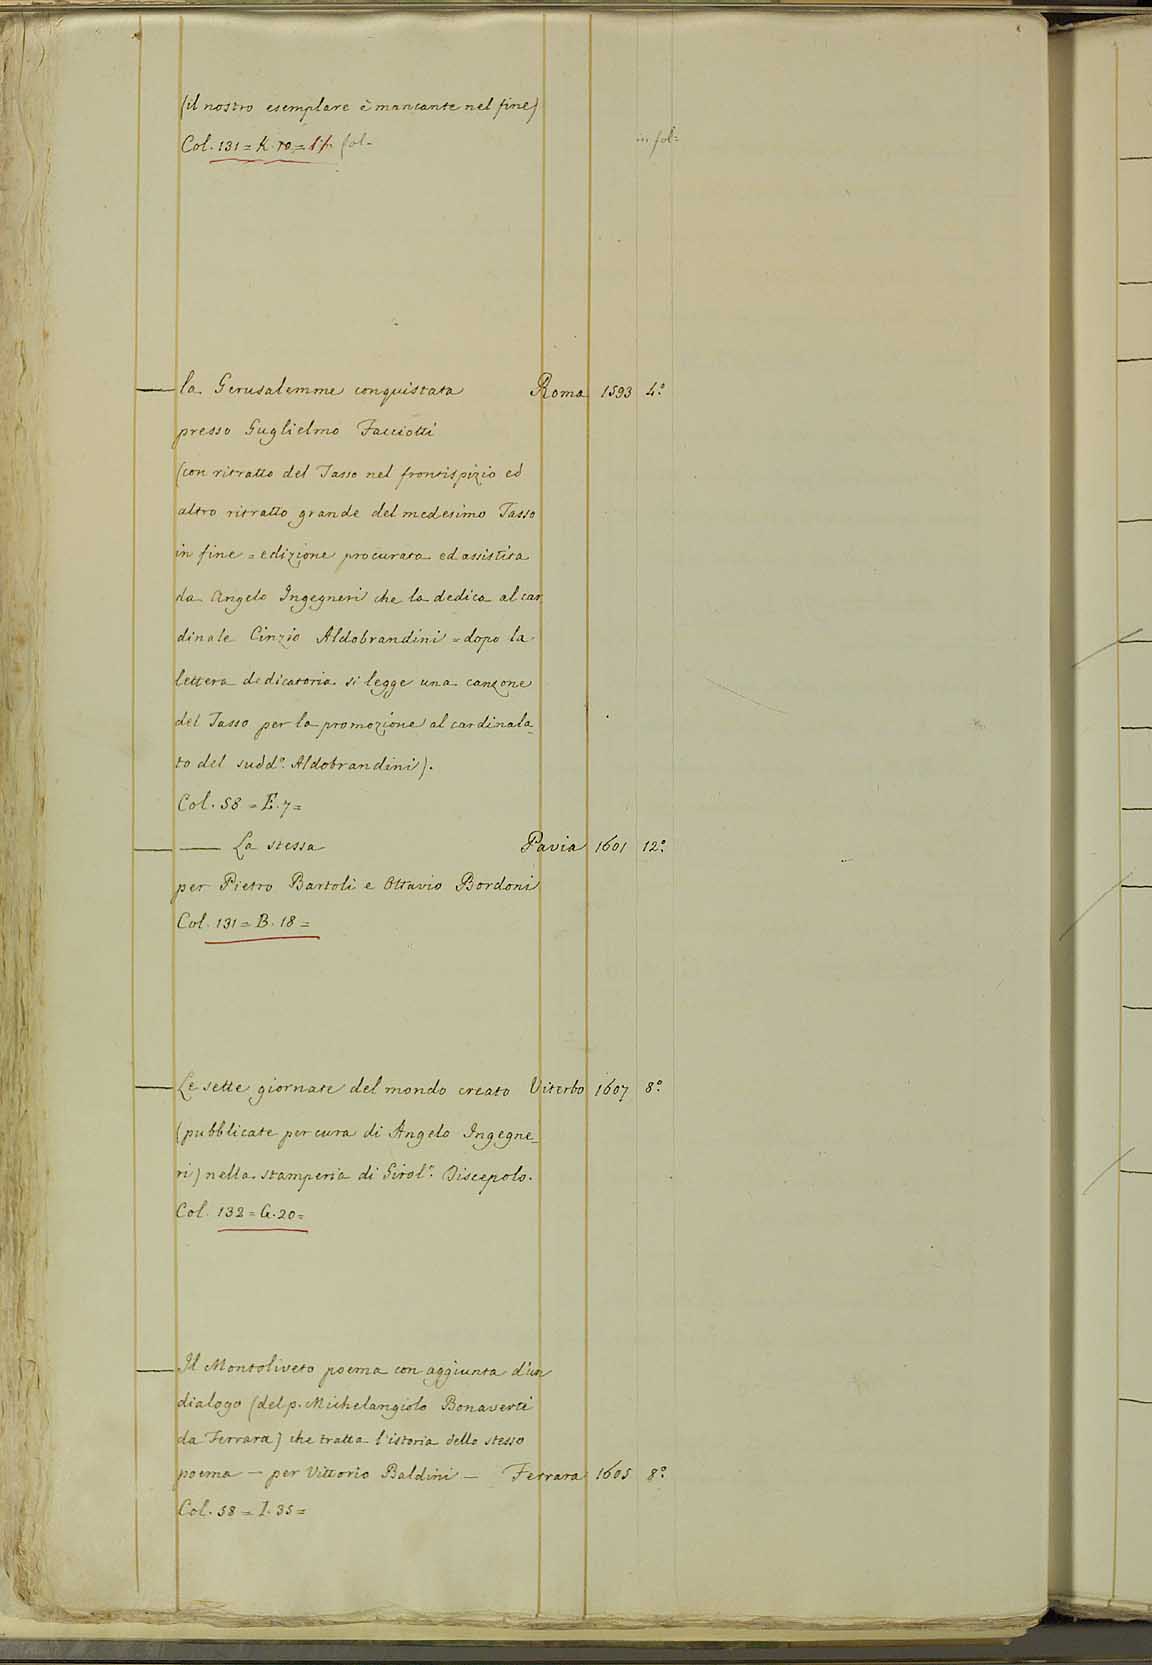 (il nostro esemplare è mancante nel fine)
Col. 131 = K. 10 = fol. in fol=
la Gerusalemme conquistata Roma 1593 4.º
presso Guglielmo Facciotti
(con ritratto del Tasso nel frontispizio ed
altro ritratto grande del medesimo Tasso
in fine = edizione procurata ed assistita
da Angelo Ingegneri che la dedica al car-
dinale Cinzio Aldobrandini = dopo la
lettera dedicatoria si legge una canzone
del Tasso per la promozione al cardinala-
to del sudd.º Aldobrandini).
Col. 58 = E. 7 =
— La stessa Pavia 1601 12.º
per Pietro Bartoli e Ottavio Bordoni
Col. 131 = B. 18 =
Le sette giornate del mondo creato Viterbo 1607 8.º
(pubblicate per cura di Angelo Ingegne-
ri) nella stamperia di Girol.º Discepolo.
Col. 132 = G. 20 =
Il Montoliveto poema con aggiunta d'un
dialogo (del p. Michelangiolo Bonaverti
da Ferrara) che tratta l'istoria dello stesso
poema — per Vittorio Baldini — Ferrara 1605 8.º
Col. 58 = I. 35 =